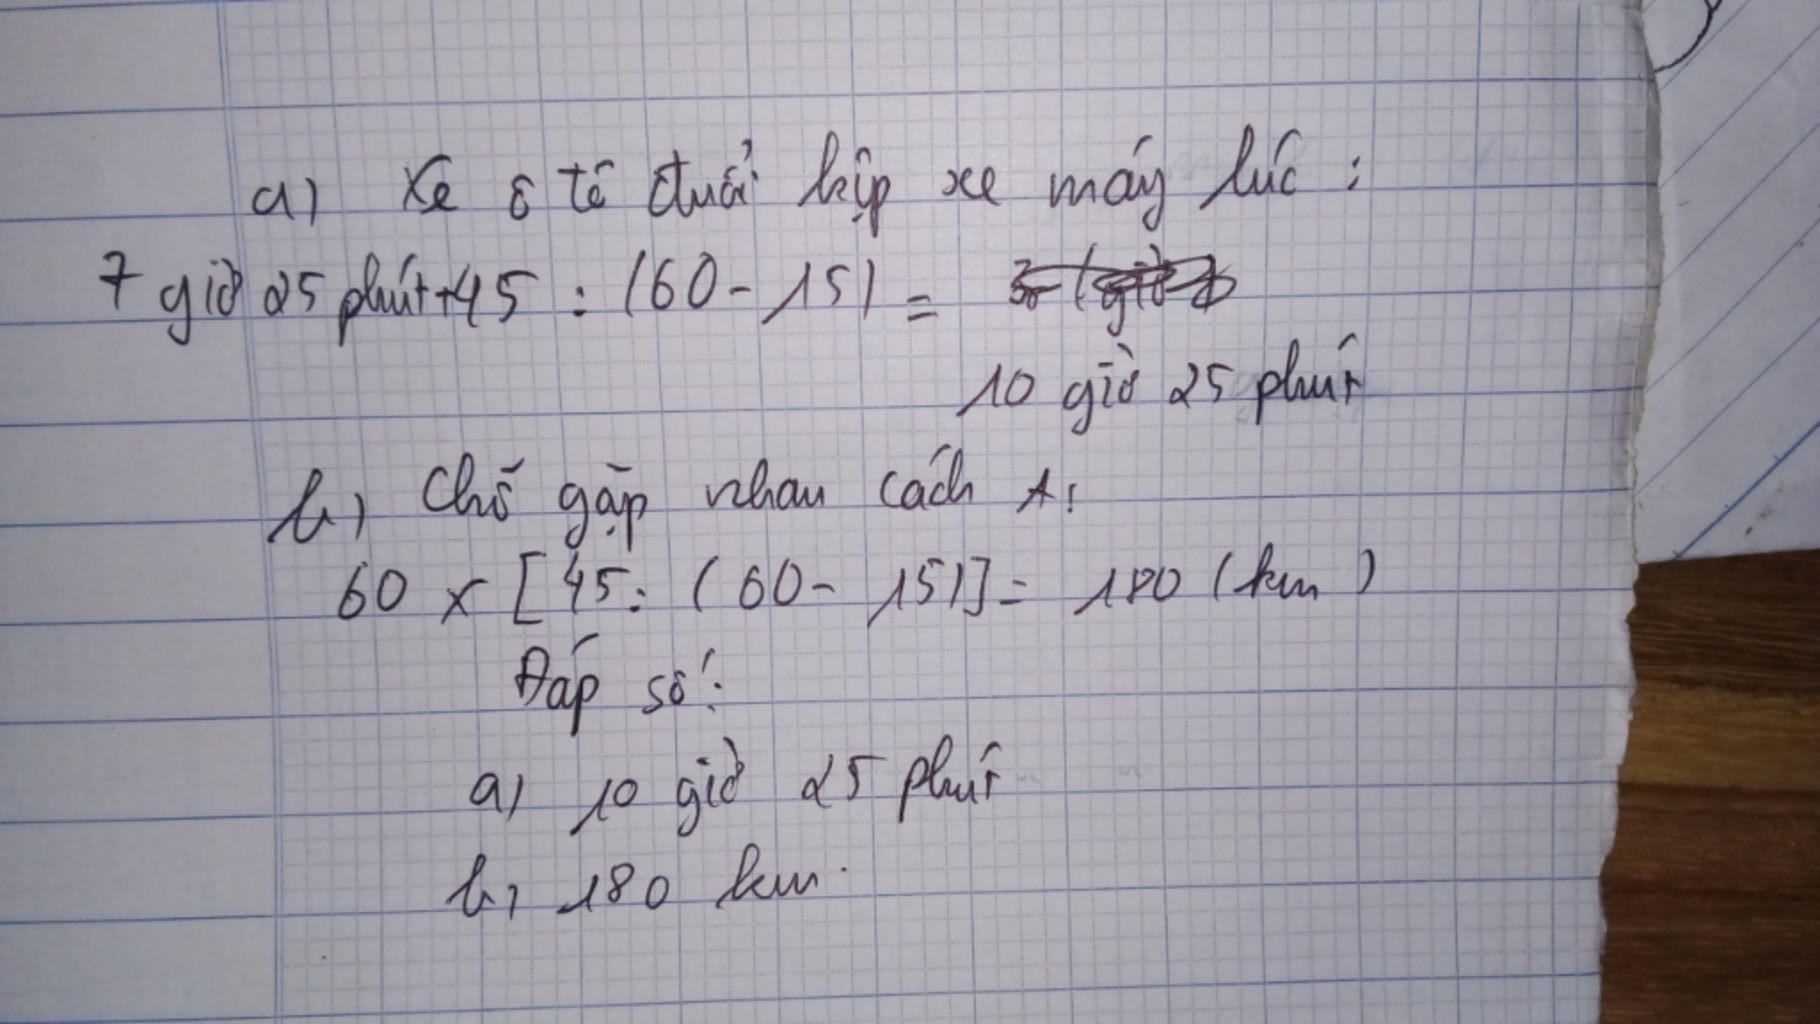 a) Xe ô tô đuổi kịp xe máy lúc :
7 giờ 25 phút + 45 : (60 - 15) =
10 giờ 25 phút
b) Chỗ gặp nhau cách A:
60 x [45 : (60 - 15)] = 180 (km)
Đáp số :
a) 10 giờ 25 phút
b) 180 km.